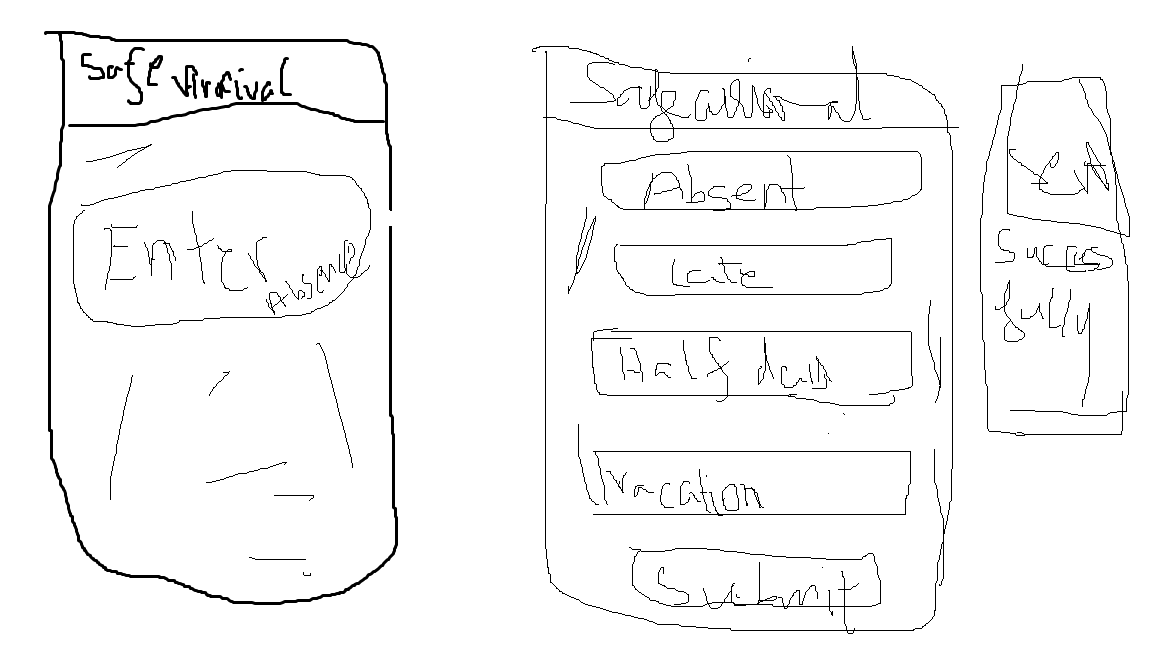 Safe Arrival
Enter
Absence
Safe arrival
Absent
Late
Half days
Vacation
Submit
Succes
fully